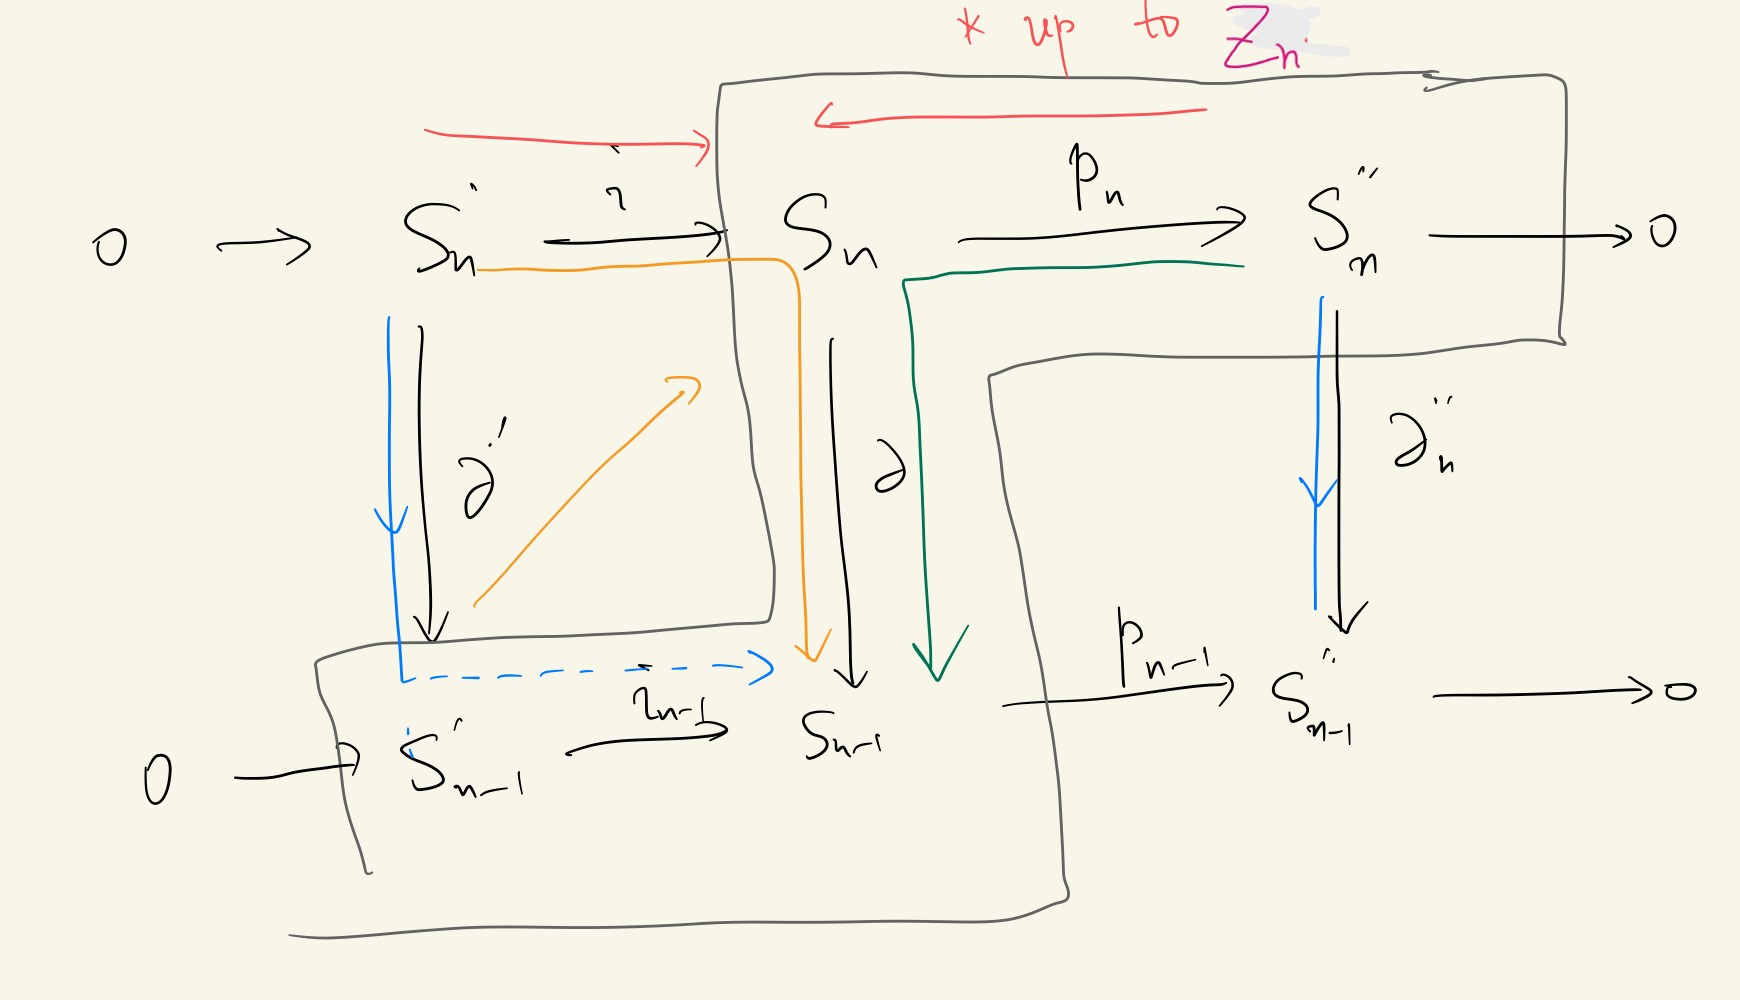 * up to Zn
0 → Sn' i → Sn pn → Sn'' → 0
∂' ∂ ∂n''
0 → Sn-1' in-1 → Sn-1 pn-1 → Sn-1'' → 0